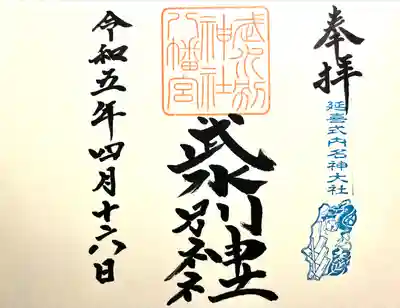 奉拝
延喜式内名神大社
武水別
神社
八幡宮
武水別神社
令和五年四月十六日